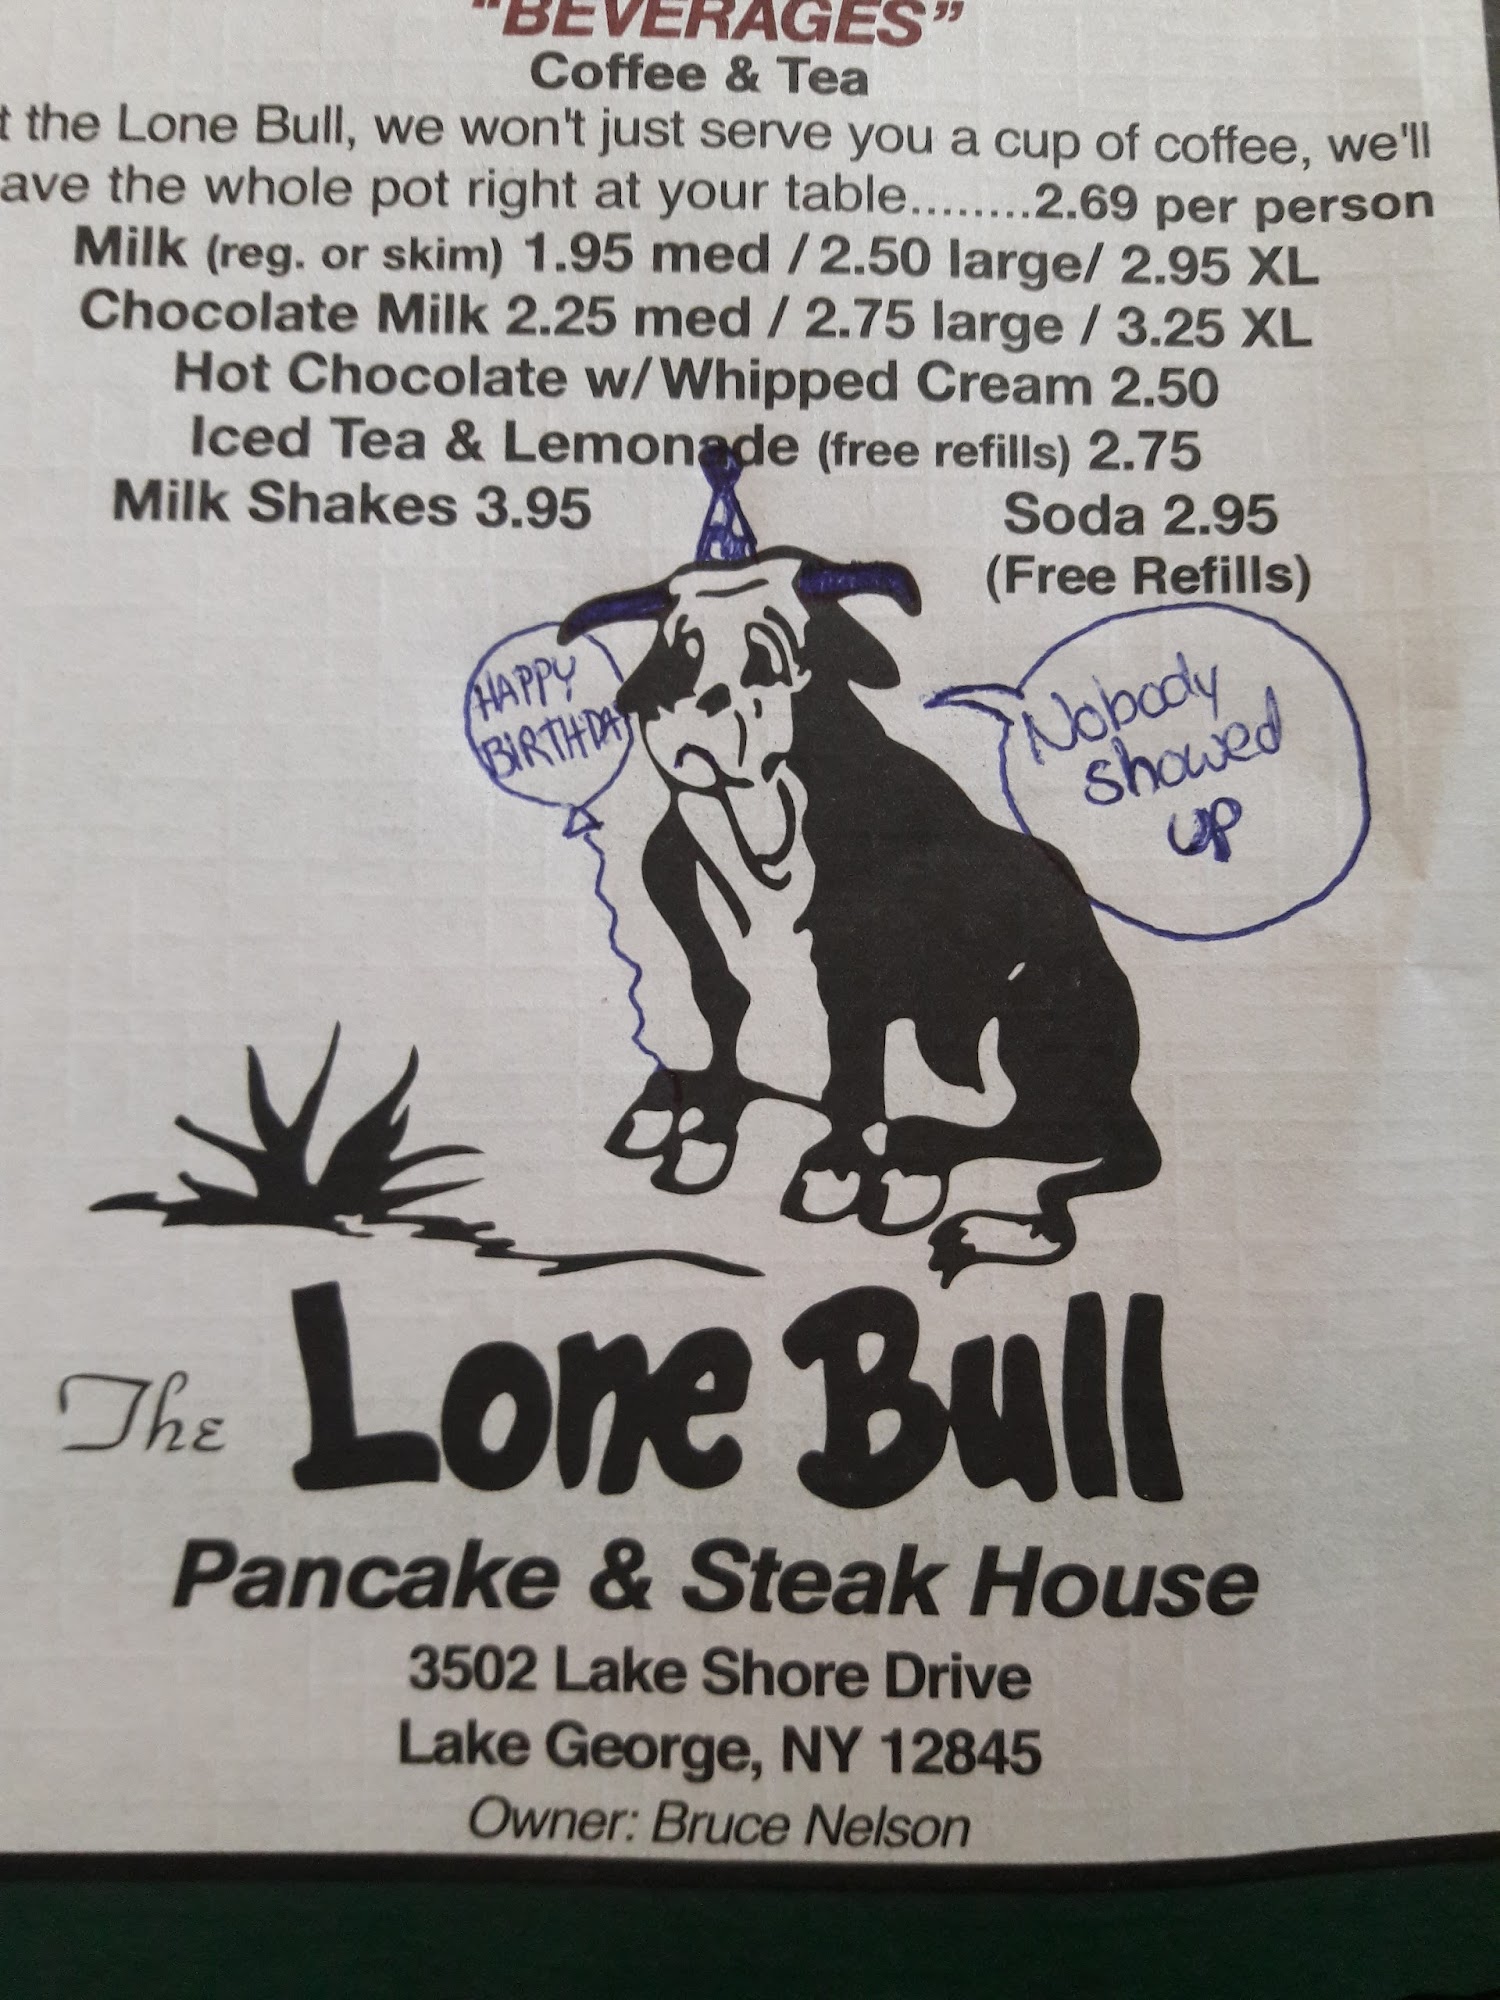 "BEVERAGES"
Coffee & Tea
t the Lone Bull, we won't just serve you a cup of coffee, we'll
ave the whole pot right at your table........2.69 per person
Milk (reg. or skim) 1.95 med / 2.50 large/ 2.95 XL
Chocolate Milk 2.25 med / 2.75 large / 3.25 XL
Hot Chocolate w/Whipped Cream 2.50
Iced Tea & Lemonade (free refills) 2.75
Milk Shakes 3.95
Soda 2.95
(Free Refills)
HAPPY
BIRTHDAY
Nobody
showed
up
The Lone Bull
Pancake & Steak House
3502 Lake Shore Drive
Lake George, NY 12845
Owner: Bruce Nelson